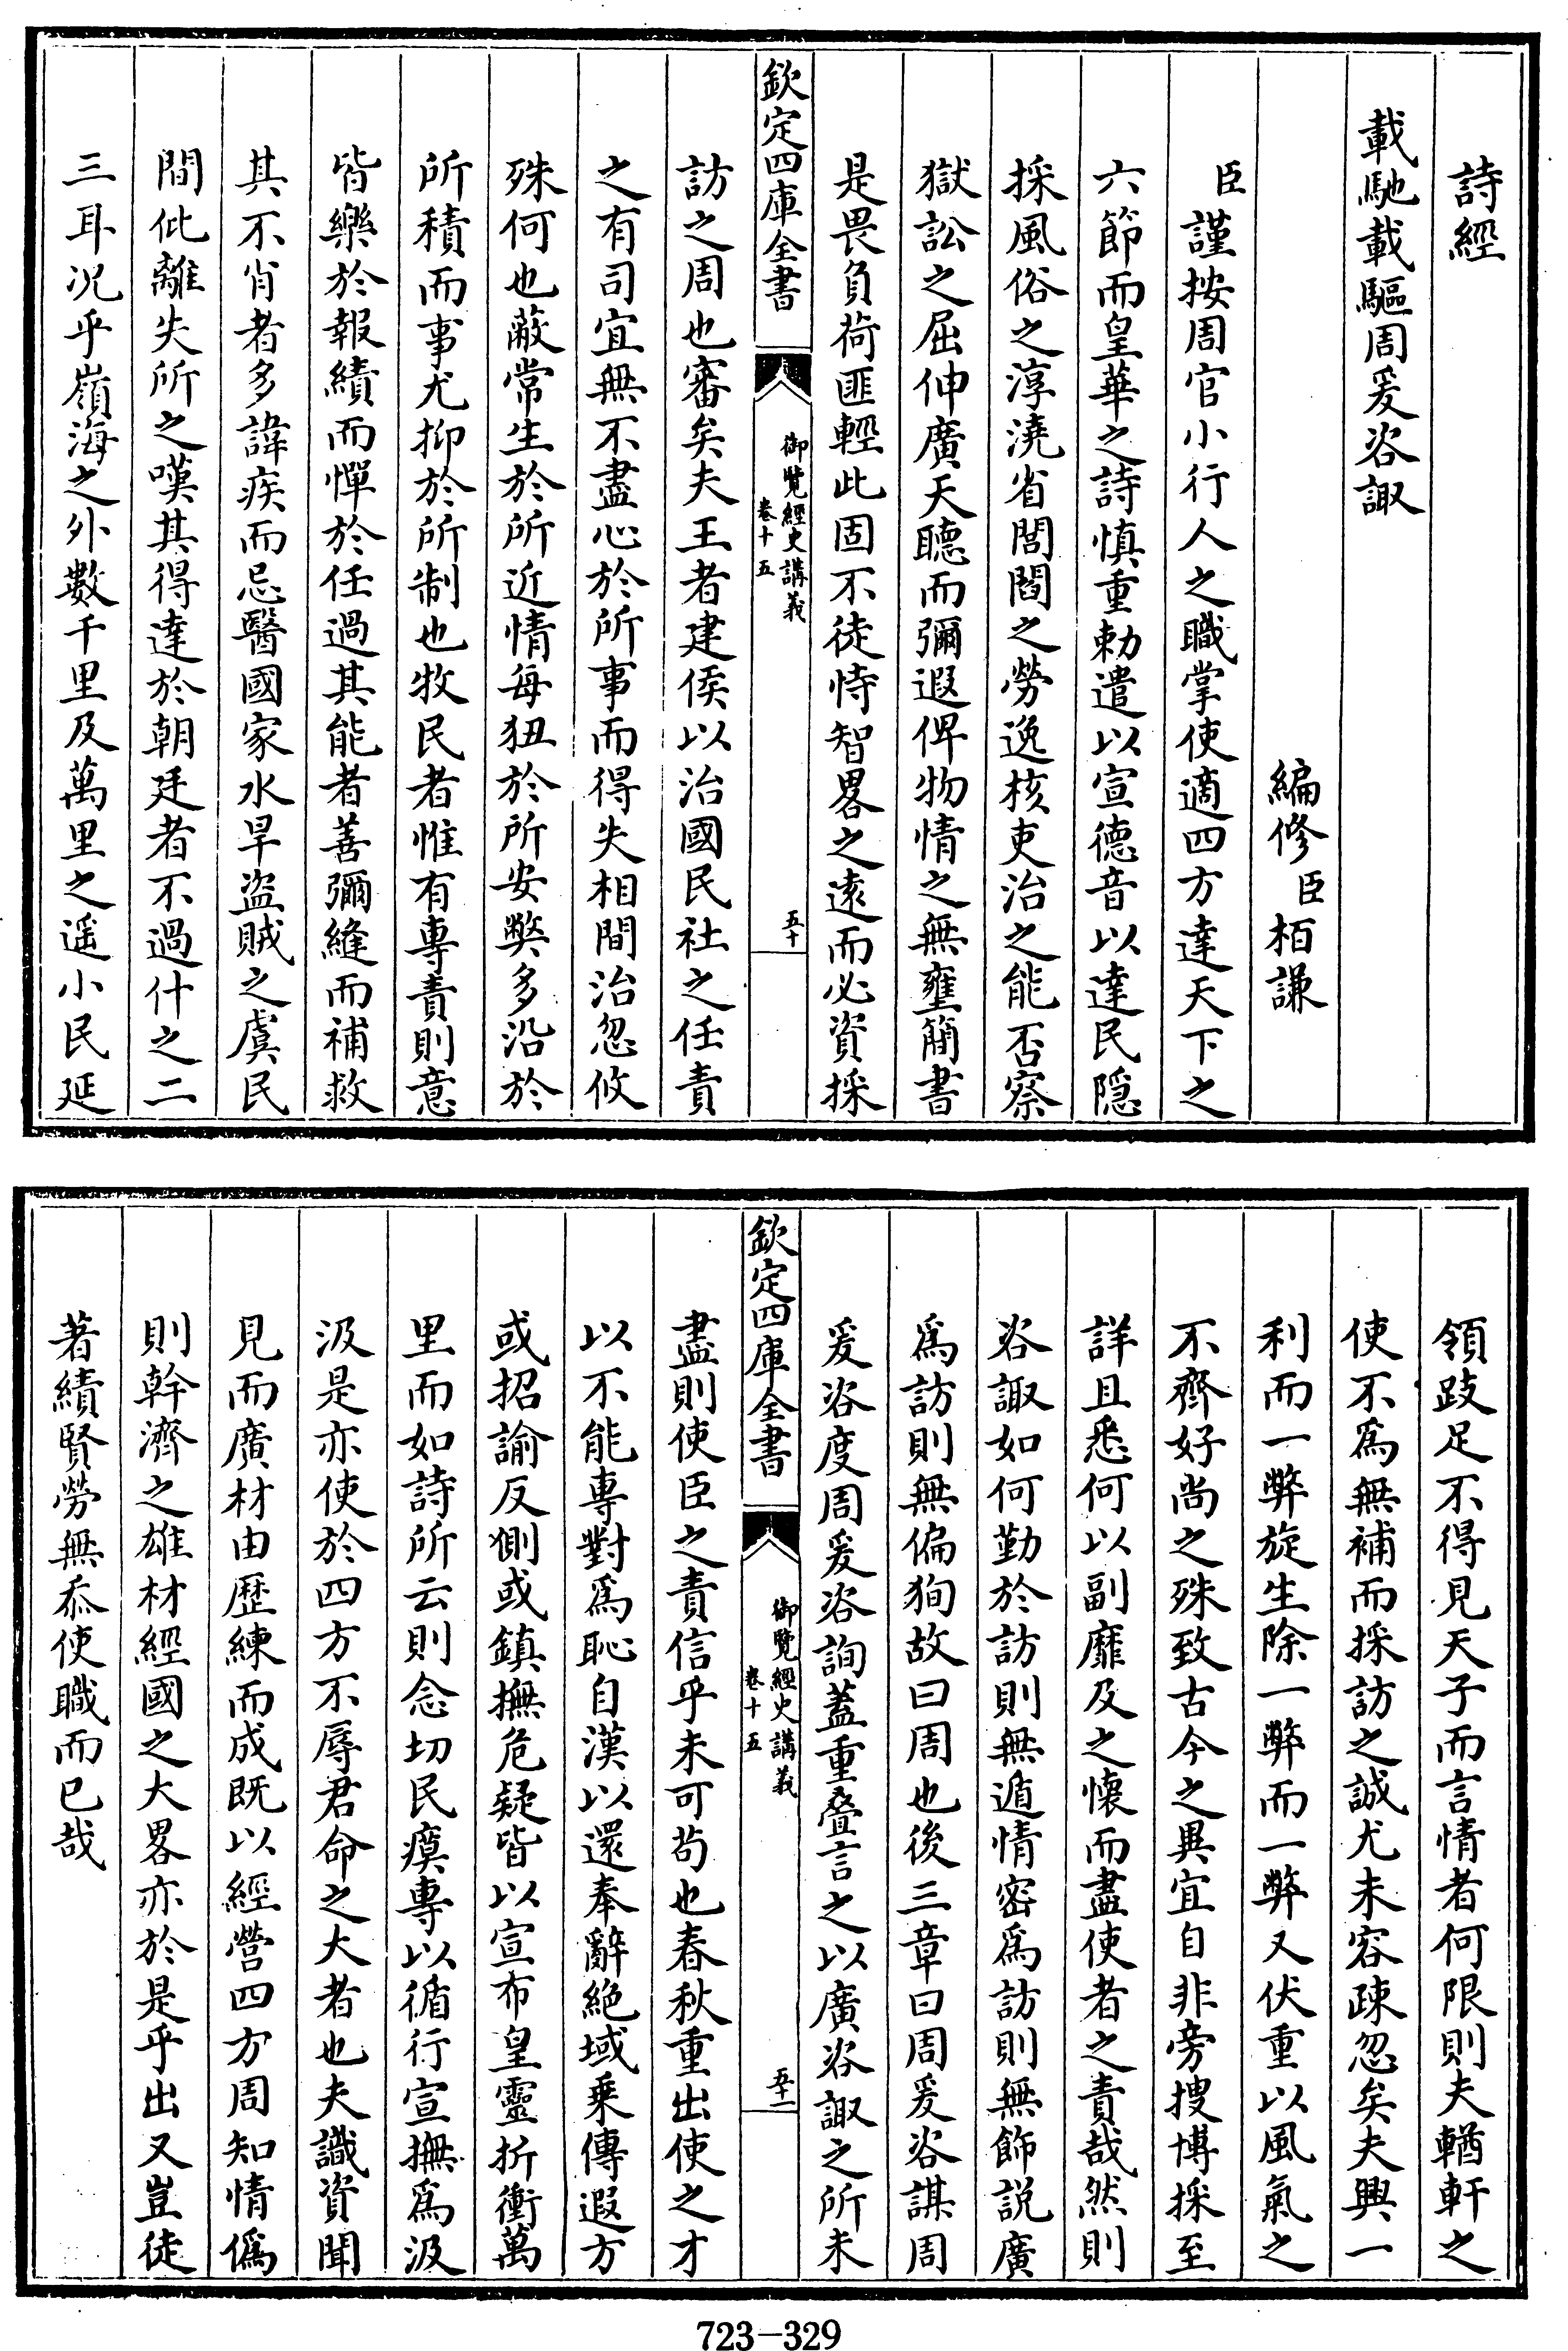 詩經
載馳載驅周爰咨諏
編修臣栢謙
臣謹按周官小行人之職掌使適四方達天下之
六節而皇華之詩慎重勅遣以宣德音以達民隱
採風俗之淳澆省閭閻之勞逸核吏治之能否察
獄訟之屈伸廣天聽而彌遐俾物情之無壅簡書
是畏負荷匪輕此固不徒恃智畧之遠而必資採
欽定四庫全書
御覽經史講義
卷十五
五十
訪之周也審矣夫王者建侯以治國民社之任責
之有司宜無不盡心於所事而得失相間治忽攸
殊何也蔽常生於所近情每狃於所安弊多沿於
所積而事尤抑於所制也牧民者惟有專責則意
皆樂於報績而憚於任過其能者善彌縫而補救
其不肖者多諱疾而忌醫國家水旱盜賊之虞民
間仳離失所之嘆其得達於朝廷者不過什之二
三耳况乎嶺海之外數千里及萬里之遥小民延
領跂足不得見天子而言情者何限則夫輶軒之
使不爲無補而採訪之誠尤未容疎忽矣夫興一
利而一弊旋生除一弊而一弊又伏重以風氣之
不齊好尚之殊致古今之異宜自非旁搜博採至
詳且悉何以副靡及之懷而盡使者之責哉然則
咨諏如何勤於訪則無遁情密爲訪則無飾説廣
爲訪則無偏狥故曰周也後三章曰周爰咨謀周
爰咨度周爰咨詢蓋重疊言之以廣咨諏之所未
欽定四庫全書
御覽經史講義
卷十五
五十一
盡則使臣之責信乎未可茍也春秋重出使之才
以不能專對爲恥自漢以還奉辭絶域乗傳遐方
或招諭反側或鎮撫危疑皆以宣布皇靈折衝萬
里而如詩所云則念切民瘼專以循行宣撫爲汲
汲是亦使於四方不辱君命之大者也夫識資聞
見而廣材由歷練而成既以經營四方周知情僞
則幹濟之雄材經國之大畧亦於是乎出又豈徒
著績賢勞無忝使職而已哉
723-329